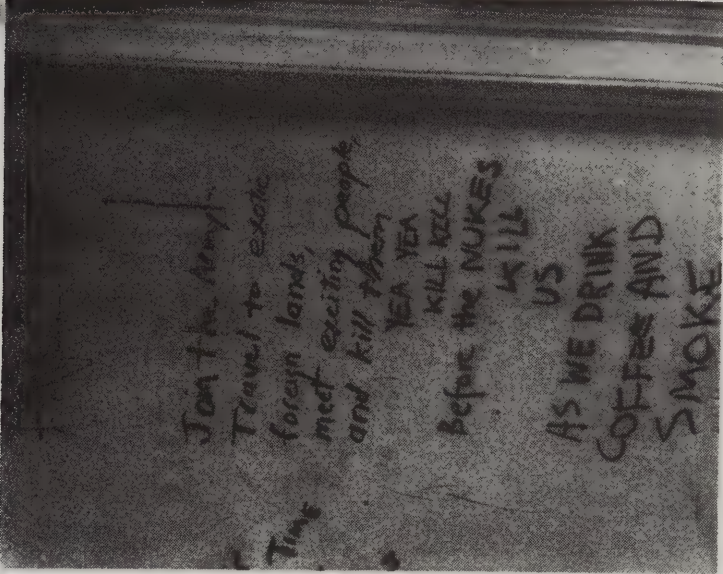 Join the Army!
Travel to exotic
foreign lands,
meet exciting people,
and kill them
YEA YEA
KILL KILL
Before the NUKES
KILL
US
AS WE DRINK
COFFEE AND
SMOKE
TIME